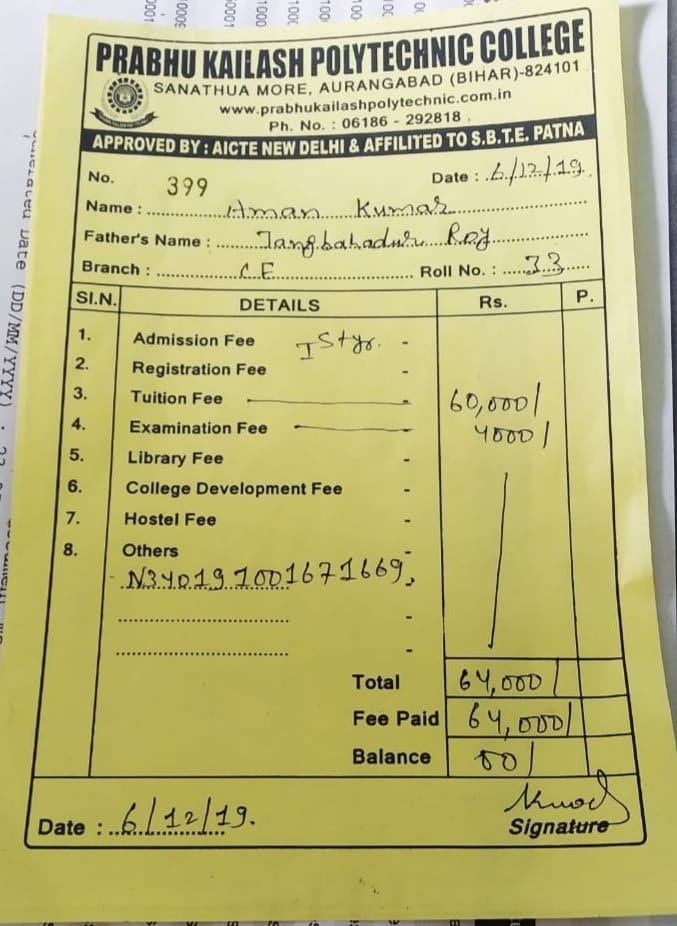 PRABHU KAILASH POLYTECHNIC COLLEGE
SANATHUA MORE, AURANGABAD (BIHAR)-824101
www.prabhukailashpolytechnic.com.in
Ph. No. : 06186 - 292818
APPROVED BY : AICTE NEW DELHI & AFFILITED TO S.B.T.E. PATNA
No. 399 Date : 6/12/19.
Name : Aman Kumar
Father's Name : Jangbahadur Roy
Branch : CE Roll No. : 33
Sl.N. DETAILS Rs. P.
1. Admission Fee I Styr. -
2. Registration Fee -
3. Tuition Fee - 60,000/
4. Examination Fee - 4000/
5. Library Fee -
6. College Development Fee -
7. Hostel Fee -
8. Others -
N340191001671669,
Total 64,000/
Fee Paid 64,000/
Balance 00/
Date : 6/12/19.
Signature
Generated Date (DD/MM/YYYY) :